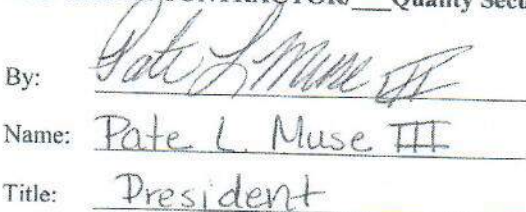 CONTRACTOR/___Quality Secu
By: Pate L Muse III
Name: Pate L Muse III
Title: President